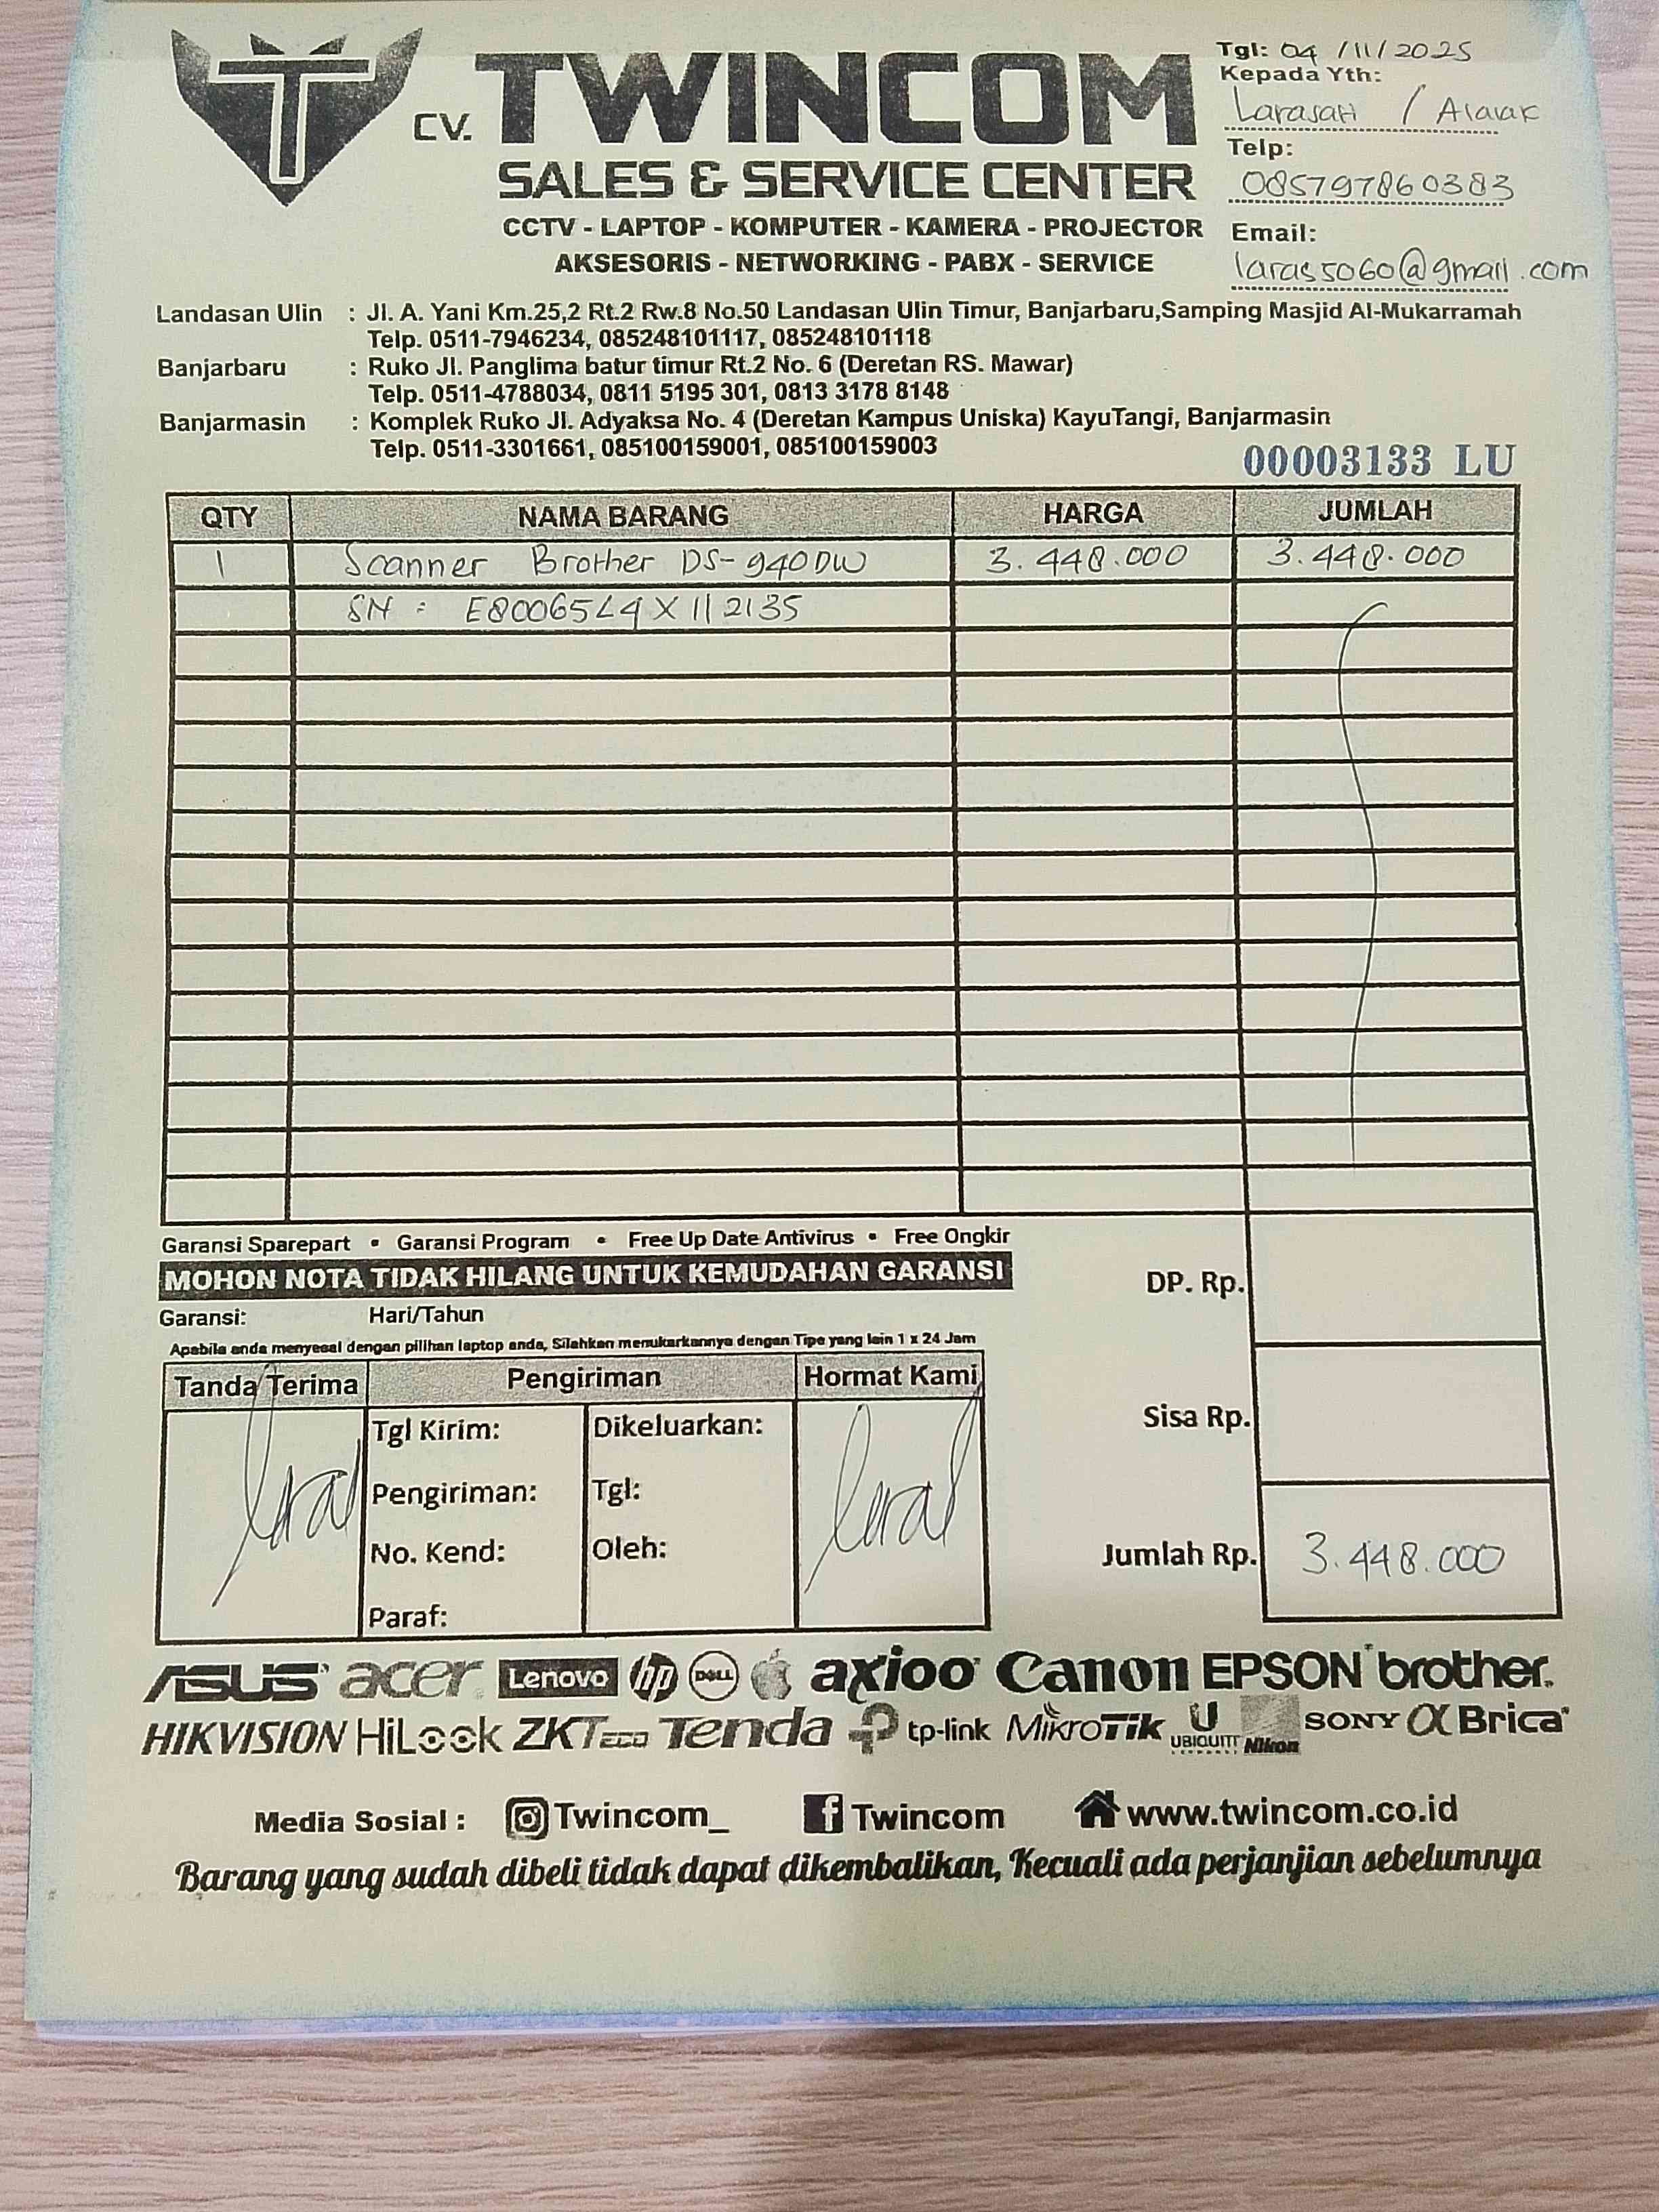 CV. TWINCOM
SALES & SERVICE CENTER
CCTV - LAPTOP - KOMPUTER - KAMERA - PROJECTOR
AKSESORIS - NETWORKING - PABX - SERVICE
Tgl: 04 /11/2025
Kepada Yth:
Larasati / Alalak
Telp:
085797860383
Email:
laras5060@gmail.com
Landasan Ulin : Jl. A. Yani Km.25,2 Rt.2 Rw.8 No.50 Landasan Ulin Timur, Banjarbaru,Samping Masjid Al-Mukarramah
Telp. 0511-7946234, 085248101117, 085248101118
Banjarbaru : Ruko Jl. Panglima batur timur Rt.2 No. 6 (Deretan RS. Mawar)
Telp. 0511-4788034, 0811 5195 301, 0813 3178 8148
Banjarmasin : Komplek Ruko Jl. Adyaksa No. 4 (Deretan Kampus Uniska) KayuTangi, Banjarmasin
Telp. 0511-3301661, 085100159001, 085100159003
00003133 LU
QTY NAMA BARANG HARGA JUMLAH
1 Scanner Brother DS-940DW 3.448.000 3.448.000
SN : E80065L4X112135
Garansi Sparepart • Garansi Program • Free Up Date Antivirus • Free Ongkir
MOHON NOTA TIDAK HILANG UNTUK KEMUDAHAN GARANSI
Garansi: Hari/Tahun
Apabila anda menyesal dengan pilihan laptop anda, Silahkan menukarkannya dengan Tipe yang lain 1 x 24 Jam
DP. Rp.
Sisa Rp.
Jumlah Rp. 3.448.000
Tanda Terima Pengiriman Hormat Kami
Tgl Kirim: Dikeluarkan:
Pengiriman: Tgl:
No. Kend: Oleh:
Paraf:
ASUS acer Lenovo hp DELL axioo Canon EPSON brother
HIKVISION HiLook ZKTeco Tenda tp-link MikroTik UBIQUITI Nikon SONY α Brica
Media Sosial : Twincom_ Twincom www.twincom.co.id
Barang yang sudah dibeli tidak dapat dikembalikan, Kecuali ada perjanjian sebelumnya